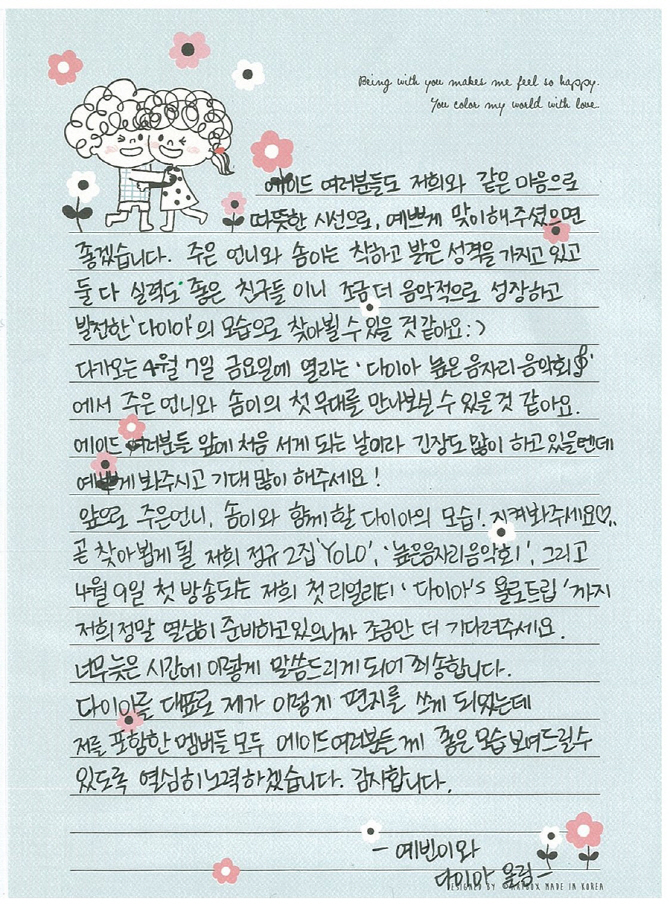 Being with you makes me feel so happy.
You color my world with love.
에이드 여러분들도 저희와 같은 마음으로
따뜻한 시선으로, 예쁘게 맞이해주셨으면
좋겠습니다. 주은 언니와 솜이는 착하고 밝은 성격을 가지고 있고
둘 다 실력도 좋은 친구들 이니 조금 더 음악적으로 성장하고
발전한 '다이아'의 모습으로 찾아뵐 수 있을 것 같아요:)
다가오는 4월 7일 금요일에 열리는 '다이아 높은 음자리 음악회'
에서 주은 언니와 솜이의 첫 무대를 만나보실 수 있을 것 같아요.
에이드 여러분들 앞에 처음 서게 되는 날이라 긴장도 많이 하고 있을텐데
예쁘게 봐주시고 기대 많이 해주세요!
앞으로 주은언니, 솜이와 함께 할 다이아의 모습! 지켜봐주세요♡..
곧 찾아뵙게 될 저희 정규 2집 'YOLO', '높은음자리음악회', 그리고
4월 9일 첫 방송되는 저희 첫 리얼리티 '다이아's 욜로트립'까지
저희 정말 열심히 준비하고있으니까 조금만 더 기다려주세요.
너무늦은 시간에 이렇게 말씀드리게 되어 죄송합니다.
다이아를 대표로 제가 이렇게 편지를 쓰게 되었는데
저를 포함한 멤버들 모두 에이드여러분들께 좋은 모습 보여드릴수
있도록 열심히노력하겠습니다. 감사합니다.
- 예빈이와
다이아 올림-
DESIGNED BY ©ARTBOX MADE IN KOREA